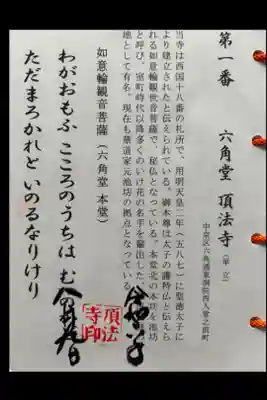 第一番　六角堂 頂法寺（単立）
中京区六角通東洞院西入堂之前町
当寺は西国十八番の札所で、用明天皇二年（五八七）に聖徳太子に
より建立されたと伝えられている。御本尊は太子の護持仏と伝えら
れる如意輪観世音菩薩で、秘仏となっている。本堂北の本坊を池坊
と呼び、室町時代以降多くのいけ花の名手を輩出した
地として有名。現在も華道家元池坊の拠点となっている。
如意輪観音菩薩（六角堂 本堂）
わがおもふ こころのうちは む
ただまろかれと いのるなりけり
頂法
寺印